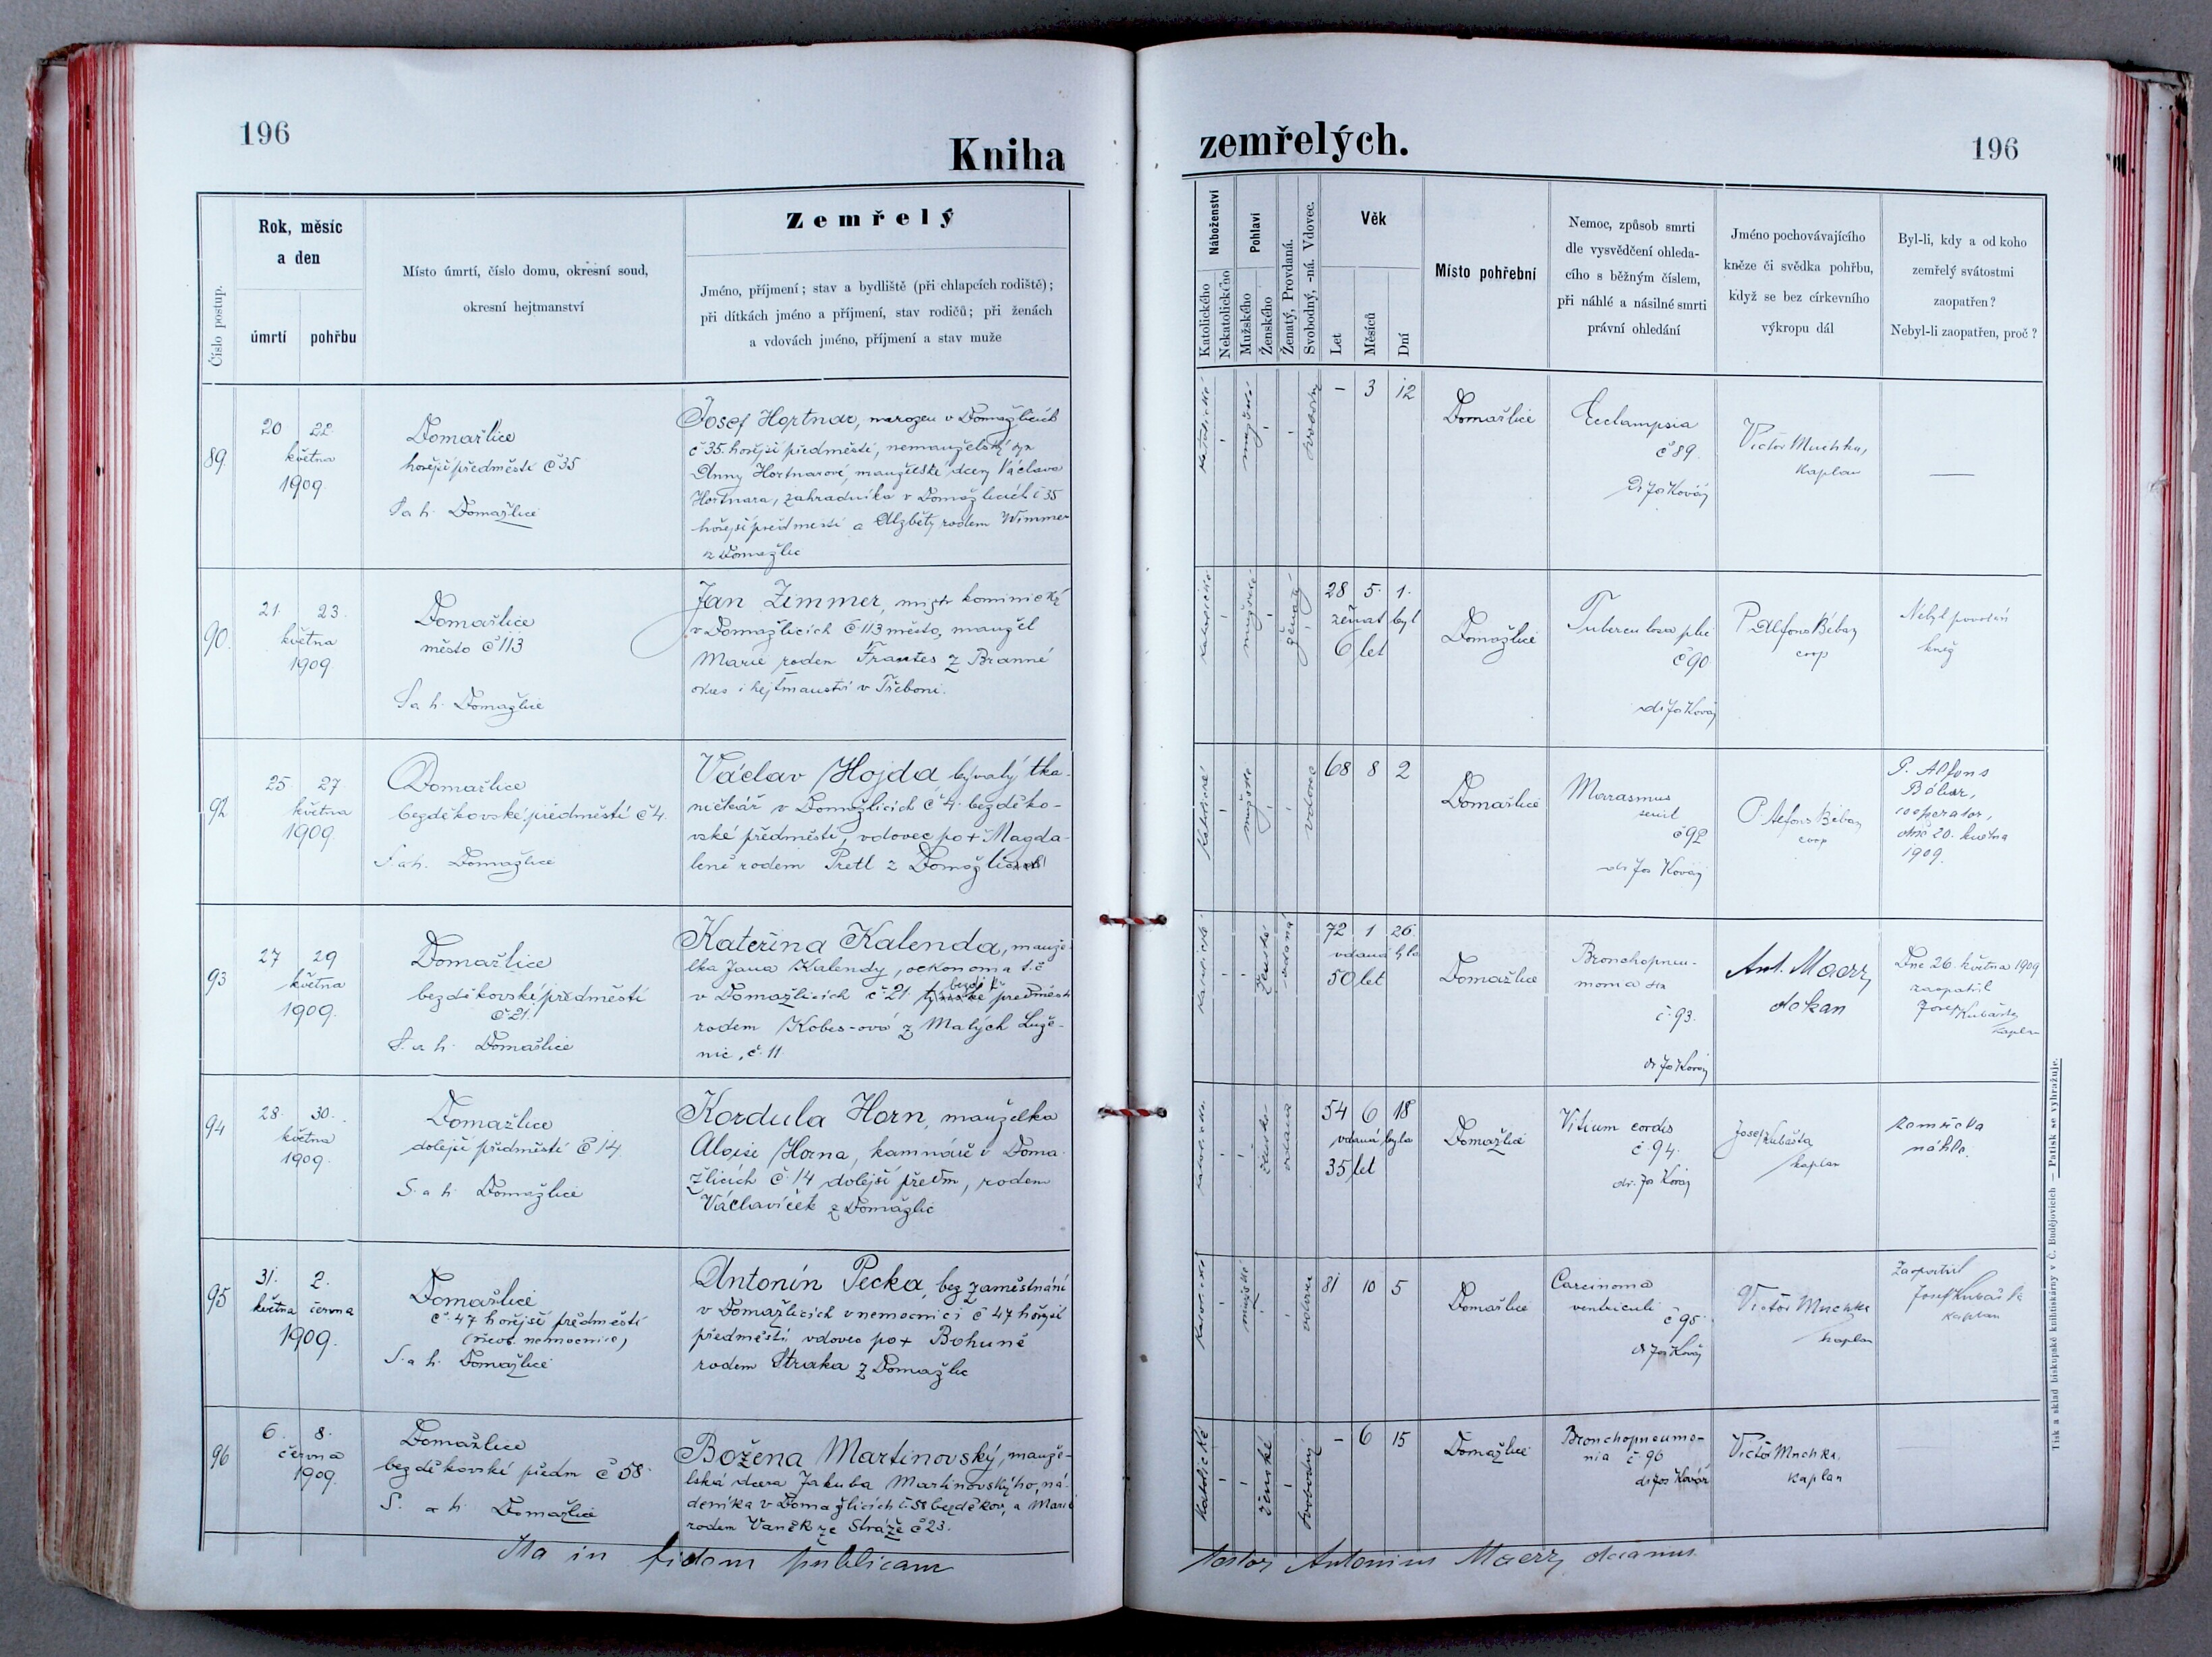 196
Kniha
zemřelých.
196
Číslo postup.
Rok, měsíc
a den
úmrtí
pohřbu
Místo úmrtí, číslo domu, okresní soud,
okresní hejtmanství
Zemřelý
Jméno, příjmení; stav a bydliště (při chlapcích rodiště);
při dítkách jméno a příjmení, stav rodičů; při ženách
a vdovách jméno, příjmení a stav muže
Náboženství
Katolického
Nekatolického
Pohlaví
Mužského
Ženského
Ženatý, Provdaná.
Svobodný, -ná. Vdovec.
Věk
Let
Měsíců
Dní
Místo pohřební
Nemoc, způsob smrti
dle vysvědčení ohleda-
cího s běžným číslem,
při náhlé a násilné smrti
právní ohledání
Jméno pochovávajícího
kněze či svědka pohřbu,
když se bez církevního
výkropu dál
Byl-li, kdy a od koho
zemřelý svátostmi
zaopatřen?
Nebyl-li zaopatřen, proč?
89.
20 22.
května
1909.
Domažlice
hořejší předměstí č 35
S a h. Domažlice
Josef Hortnar, narozen v Domažlicích
č 35. hořejší předměstí, nemanželský syn
Anny Hortnarové, manželské dcery Václava
Hortnara, zahradníka v Domažlicích č 35
hořejší předměstí a Alžběty rodem Wimmer
z Domažlic
katolické
mužské
svobodný
- 3 12
Domažlice
Ecclampsia
č 89.
Dr Jos Kovář
Victor Muchka,
kaplan
—
90.
21. 23.
května
1909
Domažlice
město č 113
S a h. Domažlice
Jan Zimmer, mistr kominický
v Domažlicích č 113 město, manžel
Marie rodem Frantes z Branné
okres i hejtmanství v Třeboni.
katolické
mužské
ženatý
28 5. 1.
ženat byl
6 let
Domažlice
Tuberculosa plic
č 90.
dr Jos Kovář
P. Alfons Bébar
coop
Nebyl povolán
kněz
92
25 27.
května
1909
Domažlice
bezděkovské předměstí č 4.
S a h. Domažlice
Václav Hojda, bývalý tka-
ničkář v Domažlicích č 4. bezděko-
vské předměstí, vdovec po + Magda-
leně rodem Pretl z Domažlic
katolické
mužské
vdovec
68 8 2
Domažlice
Marasmus
senil
č 92
dr Jos Kovář
P. Alfons Bébar
coop
P. Alfons
Bébar,
cooperator,
dne 20. května
1909.
93
27 29
května
1909.
Domažlice
bezděkovské předměstí
č 21.
S. a h. Domažlice
Kateřina Kalenda, manže-
lka Jana Kalendy, oekonoma t.č
v Domažlicích č. 21. bezděk předměstí
rodem Kobes-ová z Malých Luže-
nic, č. 11.
katolické
ženské
vdaná
72 1 26
vdaná byla
50 let
Domažlice
Bronchopneu-
monia
č. 93.
dr Jos Kovář
Ant. Maerz
děkan
Dne 26. května 1909
zaopatřil
Josef Kubášta
kaplan
94
28. 30.
května
1909.
Domažlice
dolejší předměstí č 14.
S. a h. Domažlice
Kordula Horn, manželka
Aloise Horna, kamnáře v Doma-
žlicích č. 14 dolejší předm, rodem
Václavíček z Domažlic
katolické
ženské
vdaná
54 6 18
vdaná byla
35 let
Domažlice
Vitium cordis
č. 94.
dr. Jos Kovář
Josef Kubášta
kaplan
zemřela
náhle.
95
31. 2.
května června
1909.
Domažlice
č. 47 hořejší předměstí
(všeob. nemocnice)
S. a h. Domažlice
Antonín Pecka, bez zaměstnání
v Domažlicích v nemocnici č 47 hořejší
předměstí vdovec po + Bohuně
rodem Straka z Domažlic
katolické
mužské
vdovec
81 10 5
Domažlice
Carcinoma
ventriculi
č 95.
dr Jos Kovář
Victor Muchka
kaplan
Zaopatřil
Josef Kubášta
kaplan
96
6. 8.
června
1909.
Domažlice
bezděkovské předm č 58.
S. a h. Domažlice
Božena Martinovský, manže-
lská dcera Jakuba Martinovskýho, ná-
deníka v Domažlicích č. 58 bezděkov, a Marie
rodem Vaněk ze Stráže č 23.
katolické
ženské
svobodný
- 6 15
Domažlice
Bronchopneumo-
nia č 96
dr Jos Kovář
Victor Muchka,
kaplan
Ita in fidem publicam
testor Antonius Maerz, decanus.
Tisk a sklad biskupské knihtiskárny v Č. Budějovicích — Patisk se vyhražuje.